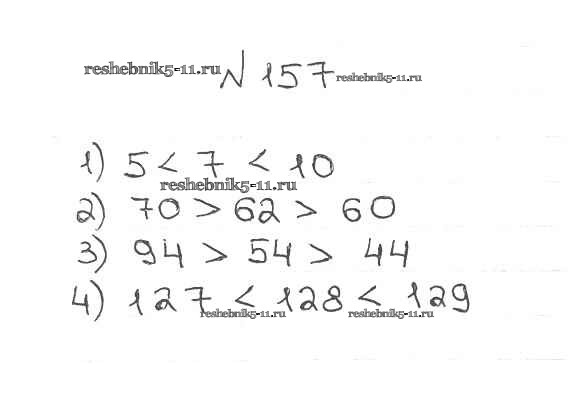 reshebnik5-11.ru № 157 reshebnik5-11.ru
1) 5 < 7 < 10
reshebnik5-11.ru
2) 70 > 62 > 60
3) 94 > 54 > 44
4) 127 < 128 < 129
reshebnik5-11.ru reshebnik5-11.ru